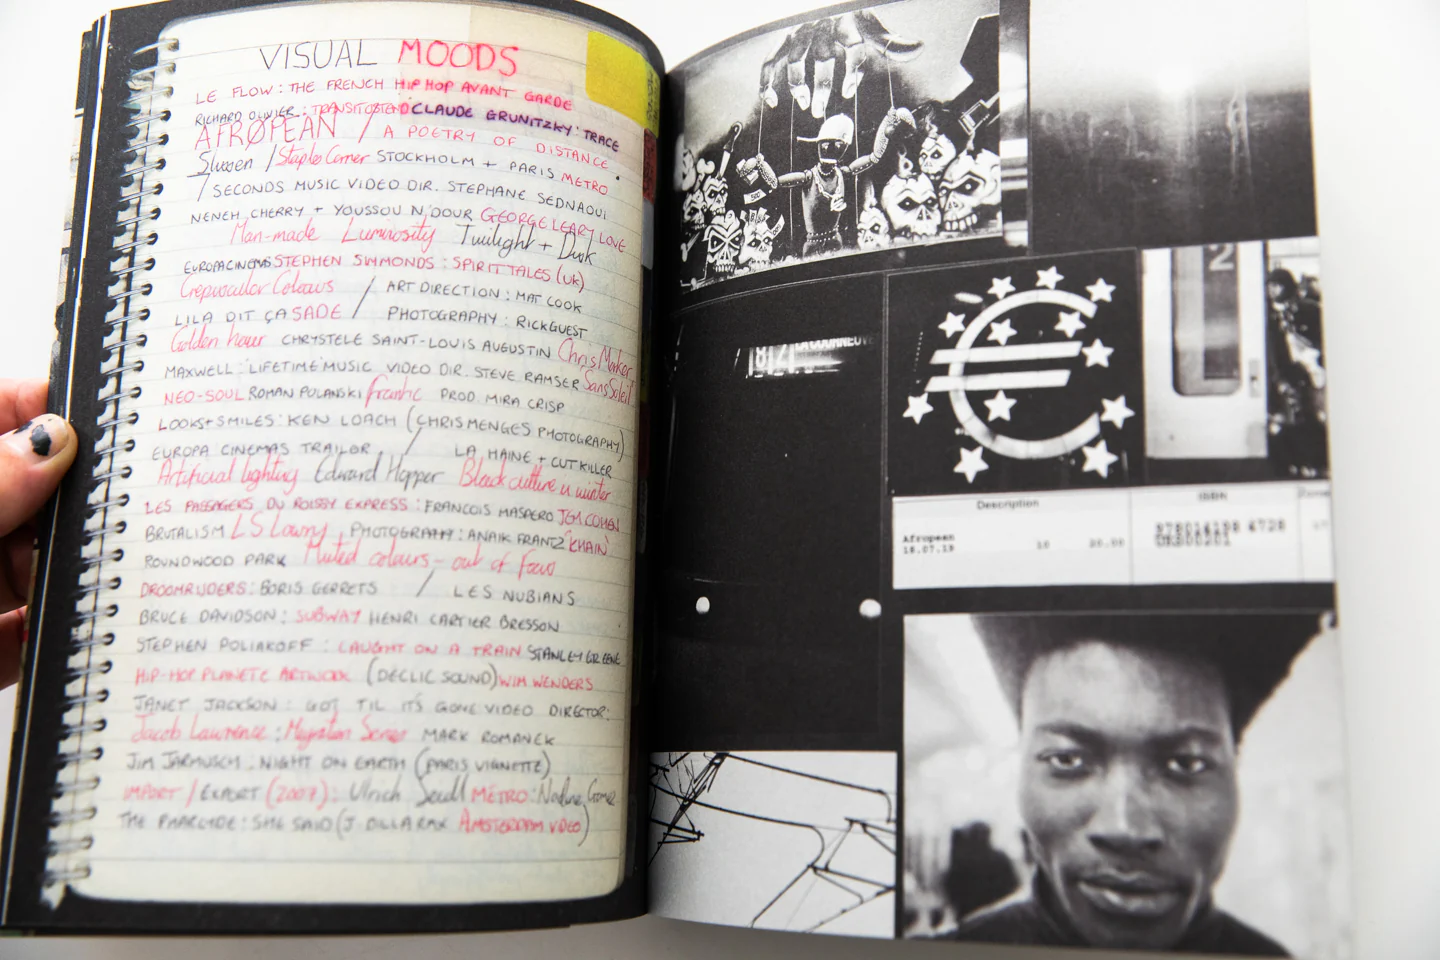 VISUAL MOODS
LE FLOW: THE FRENCH HIP HOP AVANT GARDE
RICHARD OLIVIER: TRANSIT OSTEND CLAUDE GRUNITZKY: TRACE
AFRØPEAN / A POETRY OF DISTANCE
Slussen / Staples Corner STOCKHOLM + PARIS METRO
/ SECONDS MUSIC VIDEO DIR. STEPHANE SEDNAOUI
NENEH CHERRY + YOUSSOU N'DOUR GEORGE LEARY LOVE
Man-made Luminosity Twilight + Dusk
EUROPA CINEMAS STEPHEN SIMMONDS: SPIRIT TALES (UK)
Crepuscular Colours / ART DIRECTION: MAT COOK
LILA DIT ÇA SADE / PHOTOGRAPHY: RICK GUEST
Golden hour CHRYSTELE SAINT-LOUIS AUGUSTIN Chris Marker
MAXWELL: LIFETIME MUSIC VIDEO DIR. STEVE RAMSER Sans Soleil
NEO-SOUL ROMAN POLANSKI frantic PROD. MIRA CRISP
LOOKS + SMILES: KEN LOACH (CHRIS MENGES PHOTOGRAPHY)
EUROPA CINEMAS TRAILOR / LA HAINE + CUT KILLER
Artificial lighting Edward Hopper Black culture in winter
LES PASSAGERS DU ROISSY EXPRESS: FRANCOIS MASPERO JEM COHEN
BRUTALISM LS Lowry PHOTOGRAPHY: ANAIK FRANTZ "CHAIN"
ROUNDWOOD PARK Muted colours - out of focus
DROOMRIJDERS: BORIS GERRETS / LES NUBIANS
BRUCE DAVIDSON: SUBWAY HENRI CARTIER BRESSON
STEPHEN POLIAKOFF: CAUGHT ON A TRAIN STANLEY GREENE
HIP-HOP PLANETE ARTWORK (DECLIC SOUND) WIM WENDERS
JANET JACKSON: GOT TIL IT'S GONE VIDEO DIRECTOR:
Jacob Lawrence: Migration Series MARK ROMANEK
JIM JARMUSCH: NIGHT ON EARTH (PARIS VIGNETTE)
IMPORT / EXPORT (2007): Ulrich Seidl METRO: Nadine Gomez
THE PHARCYDE: SHE SAID (J DILLA RMX AMSTERDAM VIDEO)
2
LA COURNEUVE
Description ISBN
Afropean 10 20.00
18.07.19